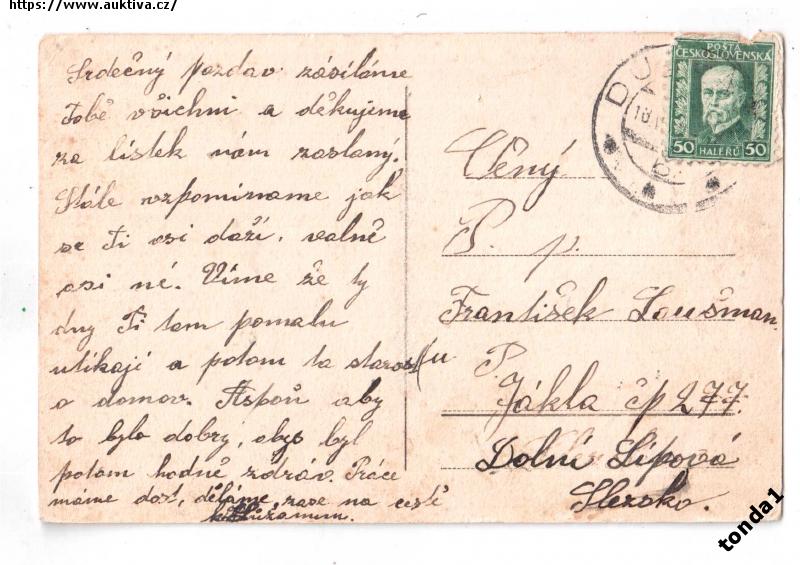 https://www.auktiva.cz/
Srdečný pozdav zásíláme
Tobě všichni a děkujeme
za lístek nám zaslaný.
Stále vzpomíname jak
se Ti asi daží, valně
asi né. Víme že ty
dny Ti tam pomalu
utíkají a potom ta starost
o domov. Aspoň aby
to bylo dobrý, abys byl
potom hodně zdráv. Práce
mame dost, děláme zase na cestě
POŠTA
ČESKOSLOVENSKÁ
50 HALÉŘŮ 50
DU
18.
Ctěný
P. p.
František Loušman
u P.
Jákla čp 277.
Dolní Lipová
Slezsko.
tonda1